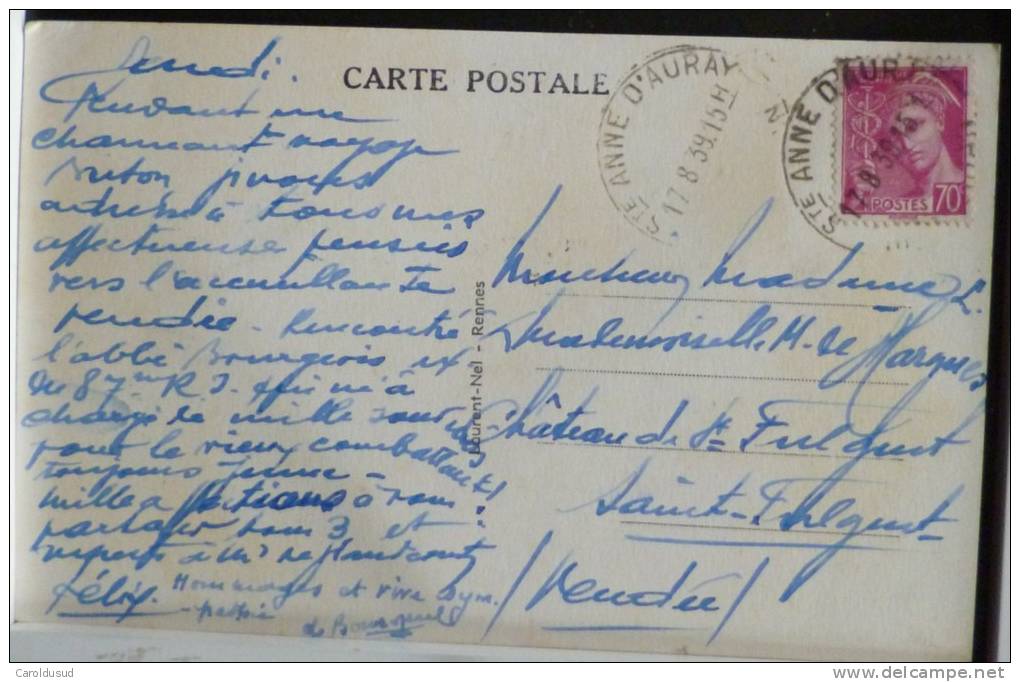 CARTE POSTALE
Jeudi.
Pendant un
charmant voyage
breton j'
adresse à tous mes
affectueuses pensées
vers l'accueillante
Vendée - Rencontré
l'abbé Bourgeois ex
du 87me R I. qui m'a
chargé de mille
pour le vieux combattant
toujours jeune -
mille à vous
partager tous 3 et
Félix. Hommages et vive sym-
pathie
STE ANNE D'AURAY
17.8 39.15H
STE ANNE D'AURAY
17.8 39.15H
POSTES 70
Laurent-Nel - Rennes
Monsieur Madame &
Mademoiselle H. de
Château de St Fulgent
Saint-Fulgent
(Vendée)
Caroldusud
delcampe.net